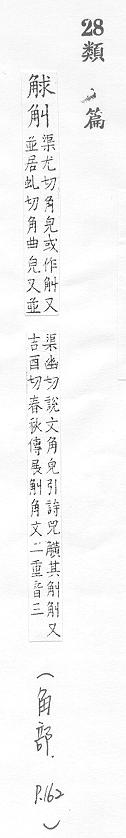 28
類篇
觩觓
渠尤切角皃或作觓又
並居虬切角曲皃又並
渠幽切說文角皃引詩兕觵其觓觓又
吉酉切春秋傳展觓角文二重音三
(角部. P.162)